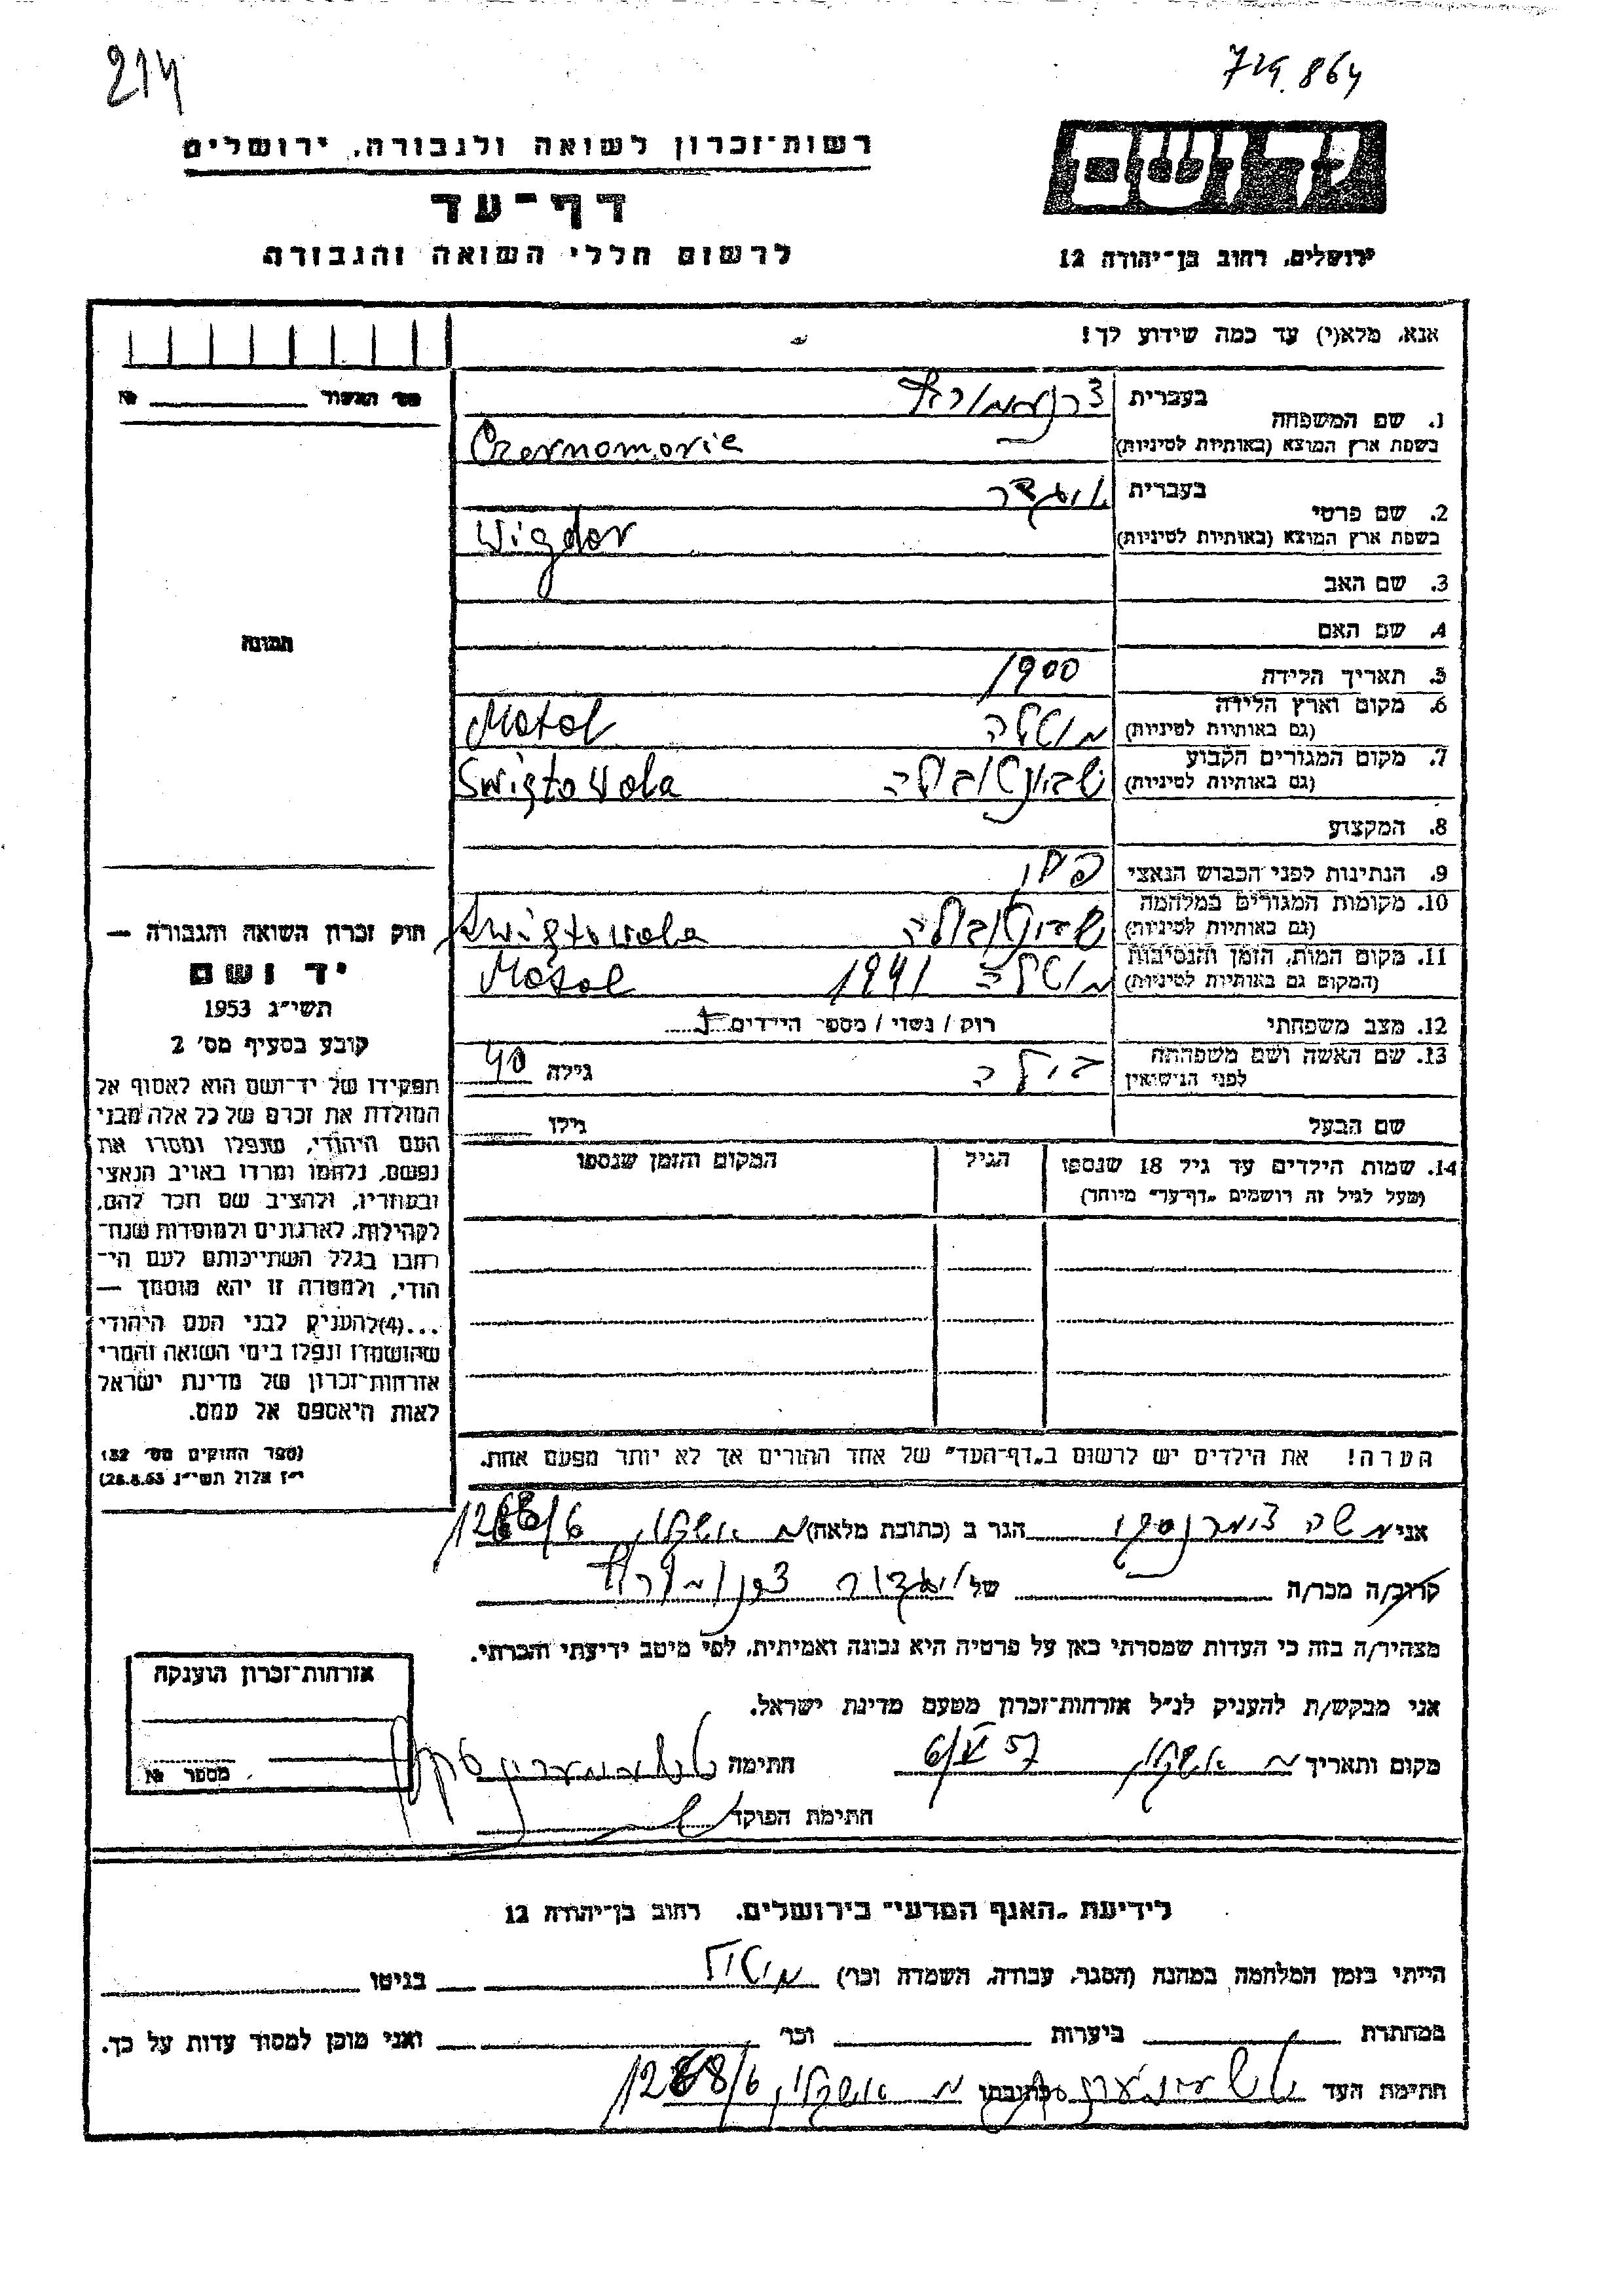 214
729.864
רשות־זכרון לשואה ולגבורה, ירושלים
דף־עד
לרשום חללי השואה והגבורה
יד ושם
ירושלים, רחוב בן־יהודה 12
אנא, מלא(י) עד כמה שידוע לך!
מס׳ האשור № 
1. שם המשפחה
בעברית
בשפת ארץ המוצא (באותיות לטיניות) Czernomorie
2. שם פרטי
בעברית
בשפת ארץ המוצא (באותיות לטיניות) Wigdor
3. שם האב
4. שם האם
תמונה
5. תאריך הלידה 1900
6. מקום וארץ הלידה
(גם באותיות לטיניות) מוטלה Motol
7. מקום המגורים הקבוע
(גם באותיות לטיניות) Swięto Vola
8. המקצוע
9. הנתינות לפני הכבוש הנאצי
10. מקומות המגורים במלחמה
(גם באותיות לטיניות) Swiętowola
11. מקום המות, הזמן והנסיבות
(המקום גם באותיות לטיניות) מוטלה 1941 Motol
12. מצב משפחתי רוק / נשוי / מספר הילדים
13. שם האשה ושם משפחתה
לפני הנישואין גילה 40
שם הבעל גילו
14. שמות הילדים עד גיל 18 שנספו
(מעל לגיל זה רושמים „דף־עד״ מיוחד)
הגיל
המקום והזמן שנספו
הערה! את הילדים יש לרשום ב„דף־העד״ של אחד ההורים אך לא יותר מפעם אחת.
חוק זכרון השואה והגבורה —
יד ושם
תשי״ג 1953
קובע בסעיף מס׳ 2
תפקידו של יד־ושם הוא לאסוף אל
המולדת את זכרם של כל אלה מבני
העם היהודי, שנפלו ומסרו את
נפשם, נלחמו ומרדו באויב הנאצי
ובעוזריו, ולהציב שם וזכר להם,
לקהילות, לארגונים ולמוסדות שנח־
רבו בגלל השתייכותם לעם הי־
הודי, ולמטרה זו יהא מוסמך —
...(4)להעניק לבני העם היהודי
שהושמדו ונפלו בימי השואה והמרי
אזרחות־זכרון של מדינת ישראל
לאות היאספם אל עמם.
(ספר החוקים מס׳ 132
י״ז אלול תשי״ג 28.8.53)
אני משה הגר ב (כתובת מלאה) אשקלון
קרוב/ה מכר/ה של
מצהיר/ה בזה כי העדות שמסרתי כאן על פרטיה היא נכונה ואמיתית, לפי מיטב ידיעתי והכרתי.
אני מבקש/ת להעניק לנ״ל אזרחות־זכרון מטעם מדינת ישראל.
מקום ותאריך אשקלון 6/V 57 חתימה
חתימת הפוקד
אזרחות־זכרון הוענקה
מספר №
לידיעת „האגף המדעי״ בירושלים. רחוב בן־יהודה 12
הייתי בזמן המלחמה במחנה (הסגר, עבודה, השמדה וכו׳) בגיטו
במחתרת ביערות וכו׳ ואני מוכן למסור עדות על כך.
חתימת העד כתובתו אשקלון